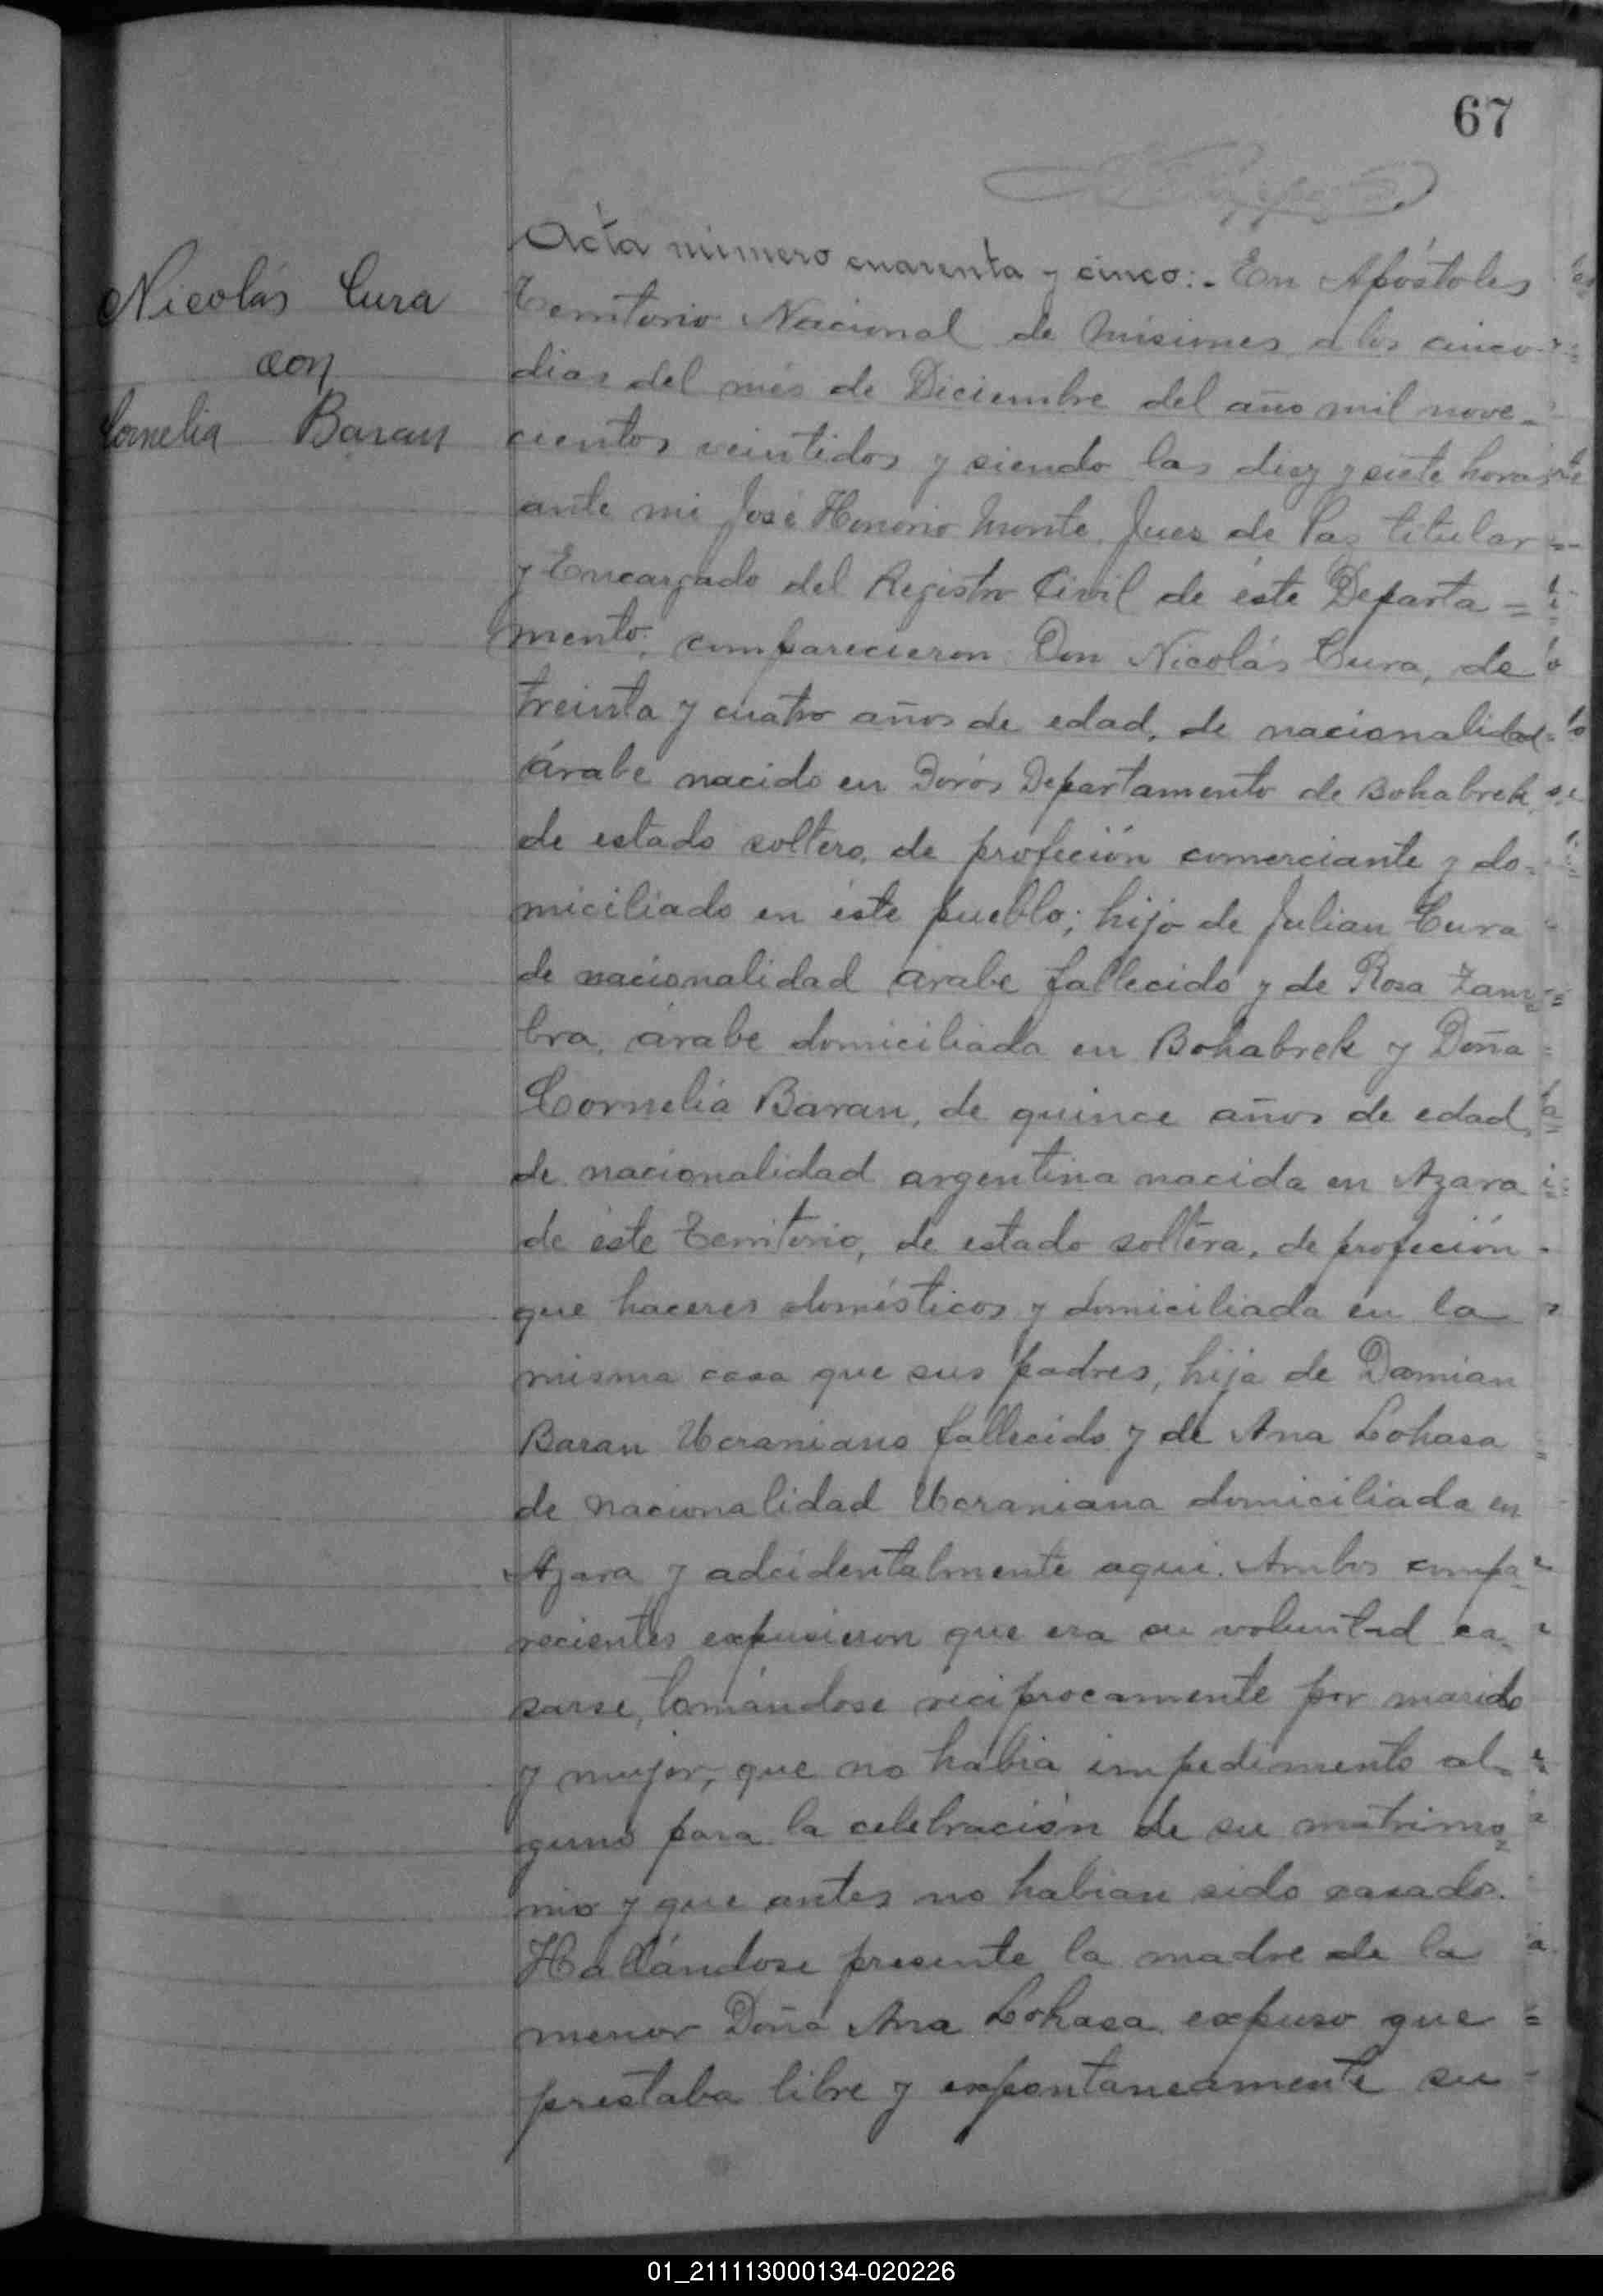 67
Nicolás Cura
con
Cornelia Baran
Acta número cuarenta y cinco:- En Apóstoles
Territorio Nacional de Misiones a los cinco
dias del mes de Diciembre del año mil nove-
cientos veintidos y siendo las diez y siete horas
ante mi José Honorio Monte, Juez de Paz titular
y Encargado del Registro Civil de éste Departa=
mento, comparecieron Don Nicolás Cura, de
treinta y cuatro años de edad, de nacionalidad
árabe nacido en Dorós Departamento de Bohabrek,
de estado soltero, de profeción comerciante y do-
miciliado en éste pueblo; hijo de Julian Cura
de nacionalidad árabe fallecido y de Rosa Zam=
bra, árabe domiciliada en Bohabrek y Doña
Cornelia Baran, de quince años de edad,
de nacionalidad argentina nacida en Azara
de éste Territorio, de estado soltera, de profeción
que haceres domésticos y domiciliada en la
misma casa que sus padres, hija de Damian
Baran Ucraniano fallecido y de Ana Lohasa
de nacionalidad Ucraniana domiciliada en
Azara y adcidentalmente aqui. Ambos compa-
recientes expusieron que era su voluntad ca-
sarse, tomándose reciprocamente por marido
y mujer, que no habia impedimento al-
guno para la celebración de su matrimo=
nio y que antes no habian sido casados.
Hallándose presente la madre de la
menor Doña Ana Lohasa expuso que
prestaba libre y expontaneamente su
01_211113000134-020226